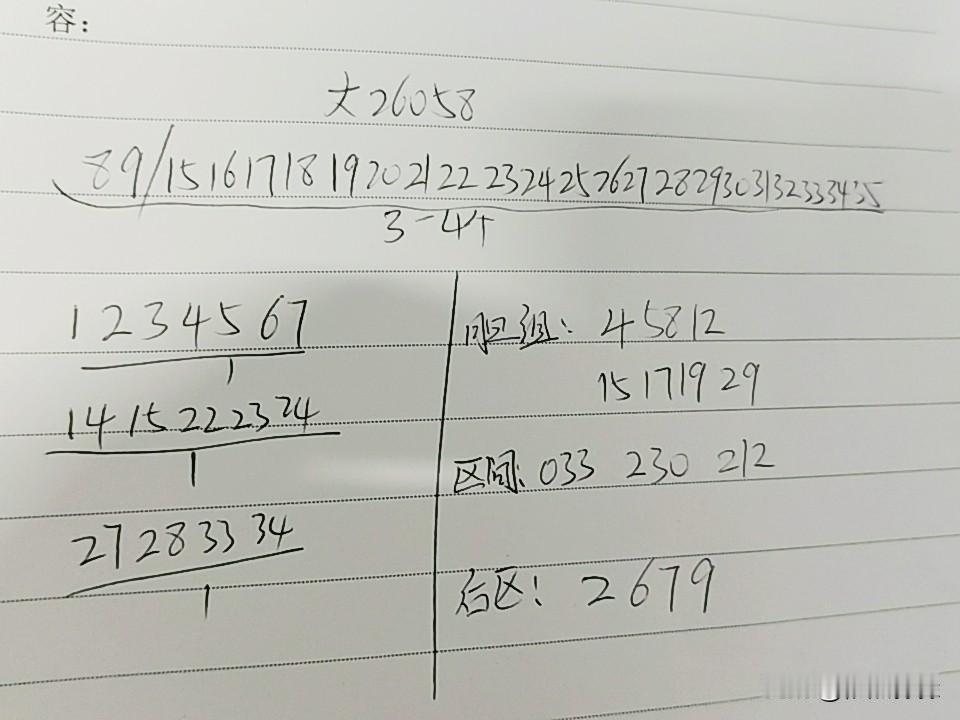 容:
大26058
89/15 16 17 18 19 20 21 22 23 24 25 26 27 28 29 30 31 32 33 34 35
3-4个
1 2 3 4 5 6 7
1
14 15 22 23 24
1
27 28 33 34
1
组: 4 5 8 12
15 17 19 29
区间: 033 230 212
后区: 2 6 7 9